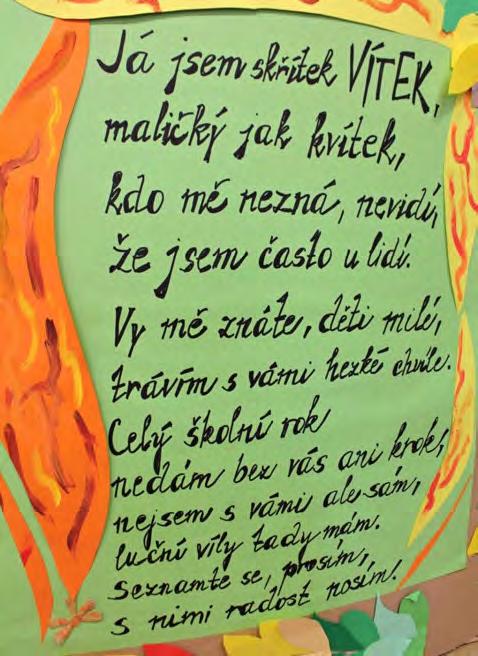 Já jsem skřítek VÍTEK,
maličký jak kvítek,
kdo mě nezná, nevidí,
že jsem často u lidí.
Vy mě znáte, děti milé,
trávím s vámi hezké chvíle.
Celý školní rok
nedám bez vás ani krok,
nejsem s vámi ale sám,
luční víly tady mám.
Seznamte se, prosím,
s nimi radost nosím!